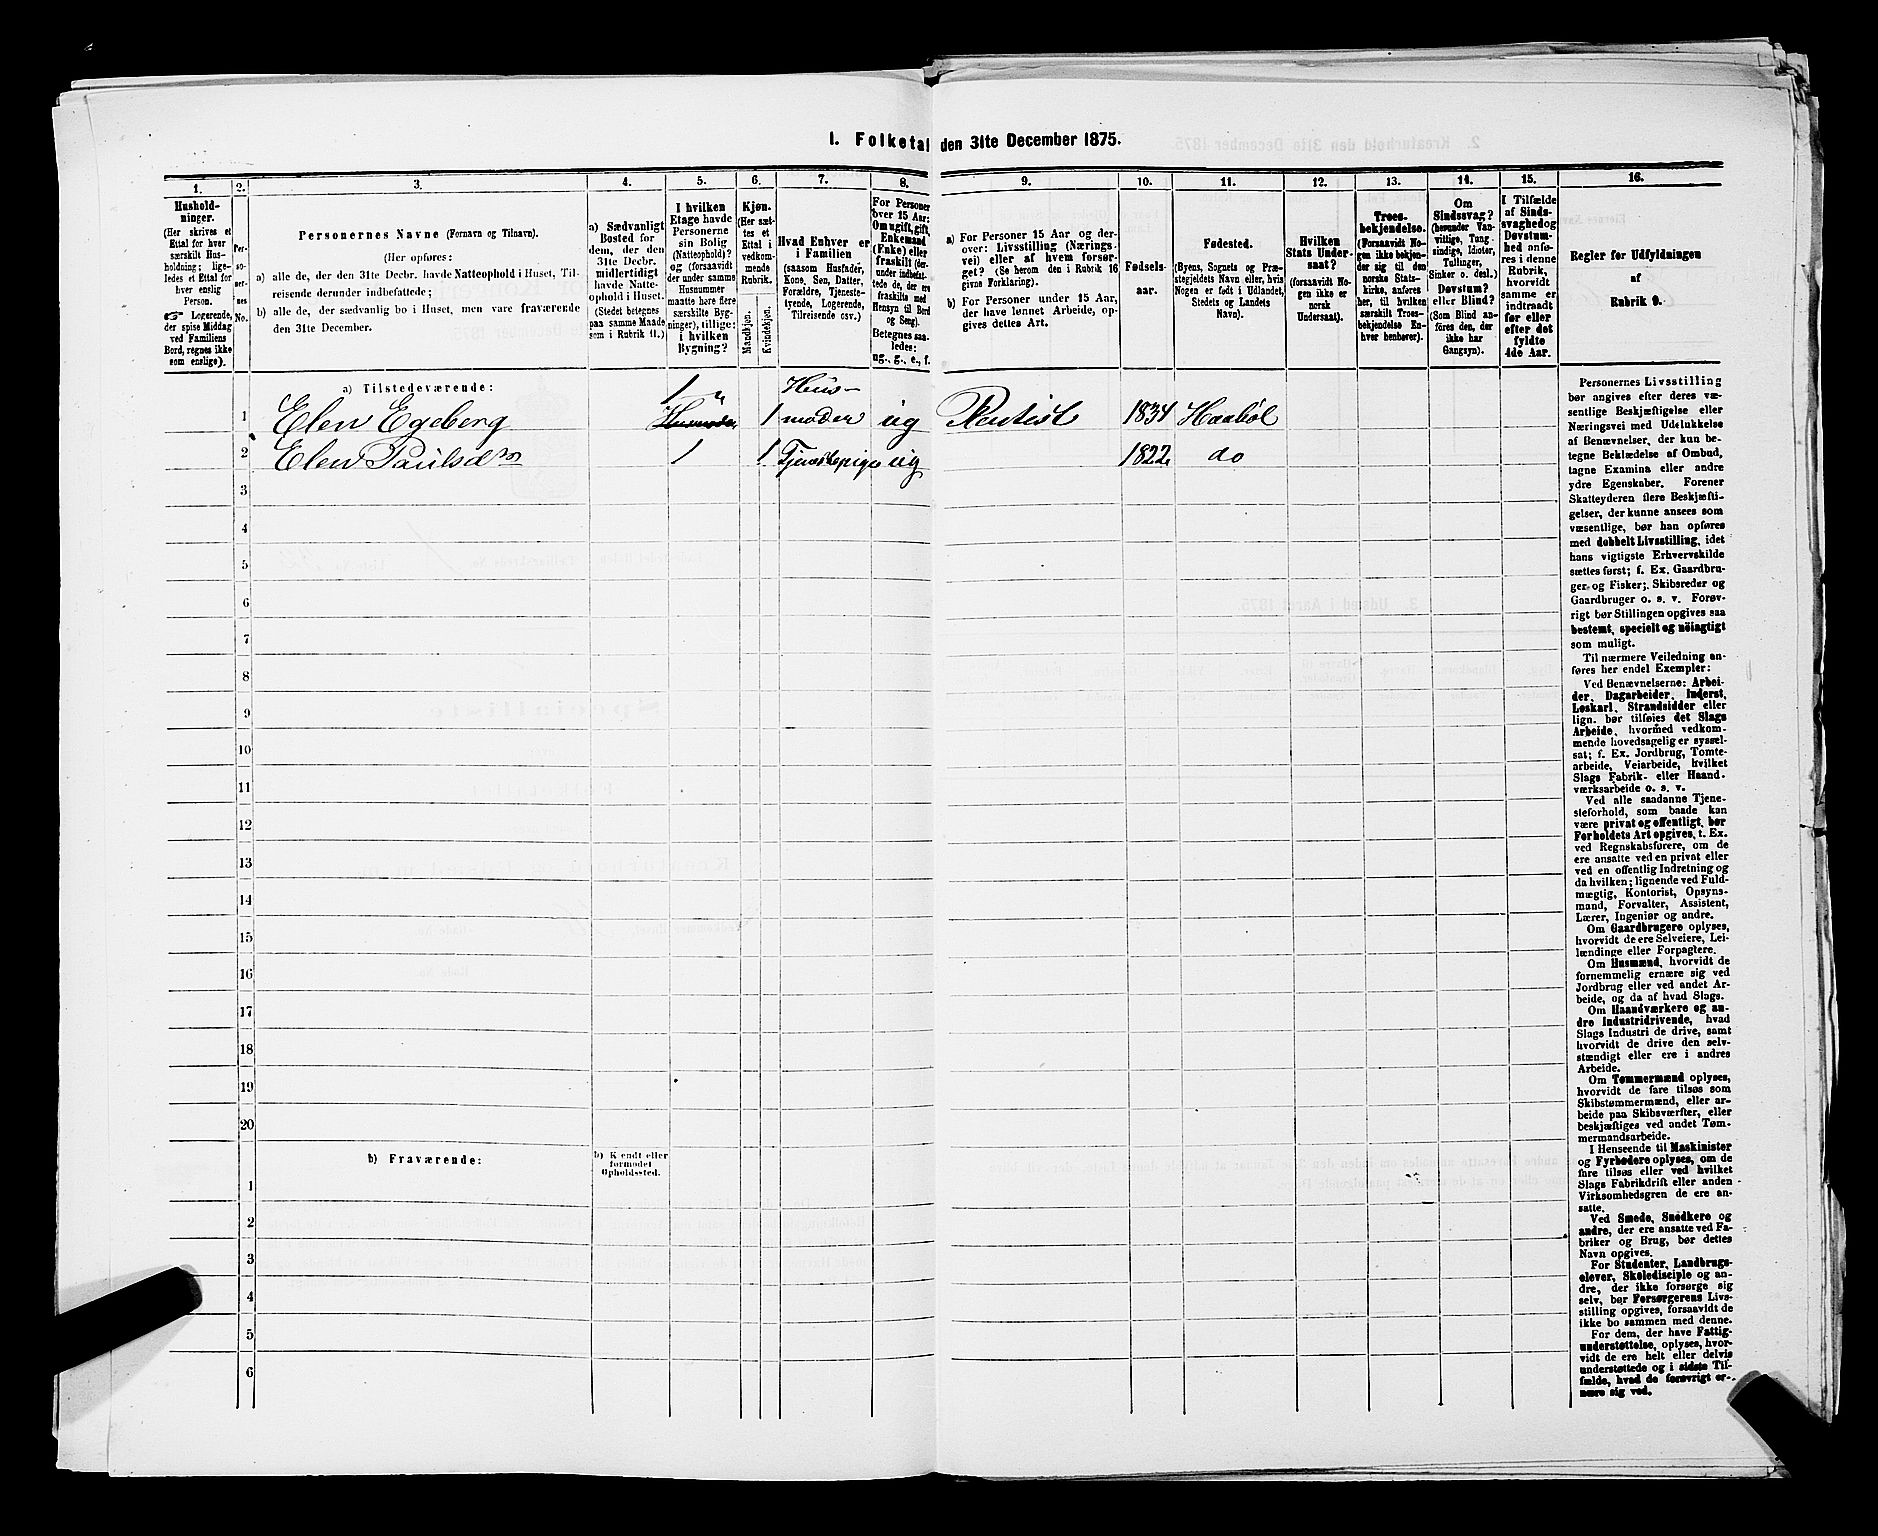 1. Folketal den 31te December 1875.
1.
2.
3.
4.
5.
6.
7.
8.
9.
10.
11.
12.
13.
14.
15.
16.
Hushold-
ninger.
(Her skrives et
Ettal for hver
særskilt Hus-
holdning; lige-
ledes et Ettal
for hver
enslig
Person.
☞ Logerende,
der spise Middag
ved Familiens
Bord, regnes ikke
som enslige).
Per-
so-
ner-
nes
No.
Personernes Navne (Fornavn og Tilnavn).
(Her opføres:
a) alle de, der den 31te Decbr. havde Natteophold i Huset, Til-
reisende derunder indbefattede;
b) alle de, der sædvanlig bo i Huset, men vare fraværende
den 31te December.
a) Sædvanligt
Bosted for
dem, der den
31te Decbr.
midlertidigt
havde Natte-
ophold i Huset.
(Stedet betegnes
paa samme Maade
som i Rubrik 11.)
I hvilken
Etage havde
Personerne
sin Bolig
(Natteophold)?
og (forsaavidt
der under samme
Husnummer
maatte høre flere
særskilte Byg-
ninger), tillige:
i hvilken
Bygning?
Kjøn.
(Her sæt-
tes et
Ettal i
vedkom-
mende
Rubrik.
Mandkjøn.
Kvindekjøn.
Hvad Enhver er
i Familien
(saasom Husfader,
Kone, Søn, Datter,
Forældre, Tjeneste-
tyende, Logerende,
Tilreisende osv.)
For Personer
over 15 Aar:
Om ugift, gift,
Enkemand
(Enke) eller
fraskilt (der-
under indbefat-
tede de, der ere
fraskilte med
Hensyn til Bord
og Seng).
Betegnes saa-
ledes:
ug., g., e., f.
a) For Personer 15 Aar og der-
over: Livsstilling (Nærings-
vei) eller af hvem forsør-
get? (Se herom den i Rubrik 16
givne Forklaring).
b) For Personer under 15 Aar,
der have lønnet Arbeide, op-
gives dettes Art.
Fødsels-
aar.
Fødested.
(Byens, Sognets og Præ-
stegjeldets Navn eller, hvis
Nogen er født i Udlandet,
Stedets og Landets
Navn).
Hvilken
Stats Under-
saat?
(forsaavidt No-
gen ikke er
norsk
Undersaat).
Troes-
bekjendelse.
(Forsaavidt No-
gen ikke bekjen-
der sig til den
norske Stats-
kirke, anføres
her, til hvilken
særskilt Troes-
bekjendelse En-
hver henhører).
Om
Sindssvag?
(herunder Van-
vittige, Tung-
sindige, Idioter,
Tullinger,
Sinker o. desl.)
Døvstum?
eller Blind?
(Som Blind an-
føres den, der
ikke har
Gangsyn).
I Tilfælde
af Sinds-
svaghed og
Døvstum-
hed anfø-
res i denne
Rubrik,
hvorvidt
samme er
indtraadt
før eller
efter det
fyldte
4de Aar.
Regler for Udfyldningen
af
Rubrik 9.
a) Tilstedeværende:
1 Elen Egeberg 1 1 Hus-
moder ug Rentist 1834 Haabøl
2 Elen Paulsdtr 1 1 Tjenestepige ug 1822 do
3
4
5
6
7
8
9
10
11
12
13
14
15
16
17
18
19
20
b) Fraværende:
b) Kjendt eller
formodet
Opholdssted.
1
2
3
4
5
6
Personernes Livsstilling
bør angives efter deres væ-
sentlige Beskjæftigelse eller
Næringsvei med Udelukkelse
af Benævnelser, der kun be-
tegne Beklædelse af Ombud,
tagne Examina eller andre
ydre Egenskaber. Forener
Skatteyderen flere Beskjæfti-
gelser, der kunne ansees som
væsentlige, bør han opføres
med dobbelt Livsstilling, idet
hans vigtigste Erhvervskilde
sættes først; f. Ex. Gaardbru-
ger og Fisker; Skibsreder og
Gaardbruger o. s. v. Forøv-
rigt bør Stillingen opgives saa
bestemt, specielt og nøiagtigt
som muligt.
Til nærmere Veiledning an-
føres her endel Exempler:
Ved Benævnelserne: Arbei-
der, Dagarbeider, Inderst,
Løskarl, Strandsidder eller
lign. bør tilføies det Slags
Arbeide, hvormed vedkom-
mende hovedsagelig er syssel-
sat; f. Ex. Jordbrug, Tomte-
arbeide, Veiarbeide, hvilket
Slags Fabrik- eller Haand-
værksarbeide o. s. v.
Ved alle saadanne Tjene-
steforhold, som baade kan
være privat og offentligt, bør
Forholdets Art opgives, t. Ex.
ved Regnskabsførere, om de
ere ansatte ved en privat eller
ved en offentlig Indretning og
da hvilken; lignende ved Fuld-
mægtig, Kontorist, Opsyns-
mand, Forvalter, Assistent,
Lærer, Ingeniør og andre.
Om Gaardbrugere oplyses,
hvorvidt de ere Selveiere, Lei-
lændinge eller Forpagtere.
Om Husmænd, hvorvidt de
fornemmelig ernære sig ved
Jordbrug eller ved andet Ar-
beide, og da af hvad Slags.
Om Haandværkere og an-
dre Industridrivende, hvad
Slags Industri de drive, samt
hvorvidt de drive den selv-
stændigt eller ere i andres
Arbeide.
Om Tømmermænd oplyses,
hvorvidt de fare tilsøs som
Skibstømmermænd, eller ar-
beide paa Skibsværfter, eller
beskjæftiges ved andet Tøm-
mermandsarbeide.
I Henseende til Maskinister
og Fyrbødere oplyses, om de
fare tilsøs eller ved hvilket
Slags Fabrikdrift eller anden
Virksomhedsgren de ere an-
satte.
Ved Smede, Snedkere og
andre, der ere ansatte ved Fa-
briker og Brug, bør dettes
Navn opgives.
For Studenter, Landbrugs-
elever, Skoledisciple og an-
dre, der ikke forsørge sig
selv, bør Forsørgerens Livs-
stilling opgives, forsaavidt de
ikke bo sammen med denne.
For dem, der have Fattig-
understøttelse, oplyses, hvor-
vidt de ere helt eller delvis
understøttede og i sidste Til-
fælde, hvad de forøvrigt er-
nære sig ved.